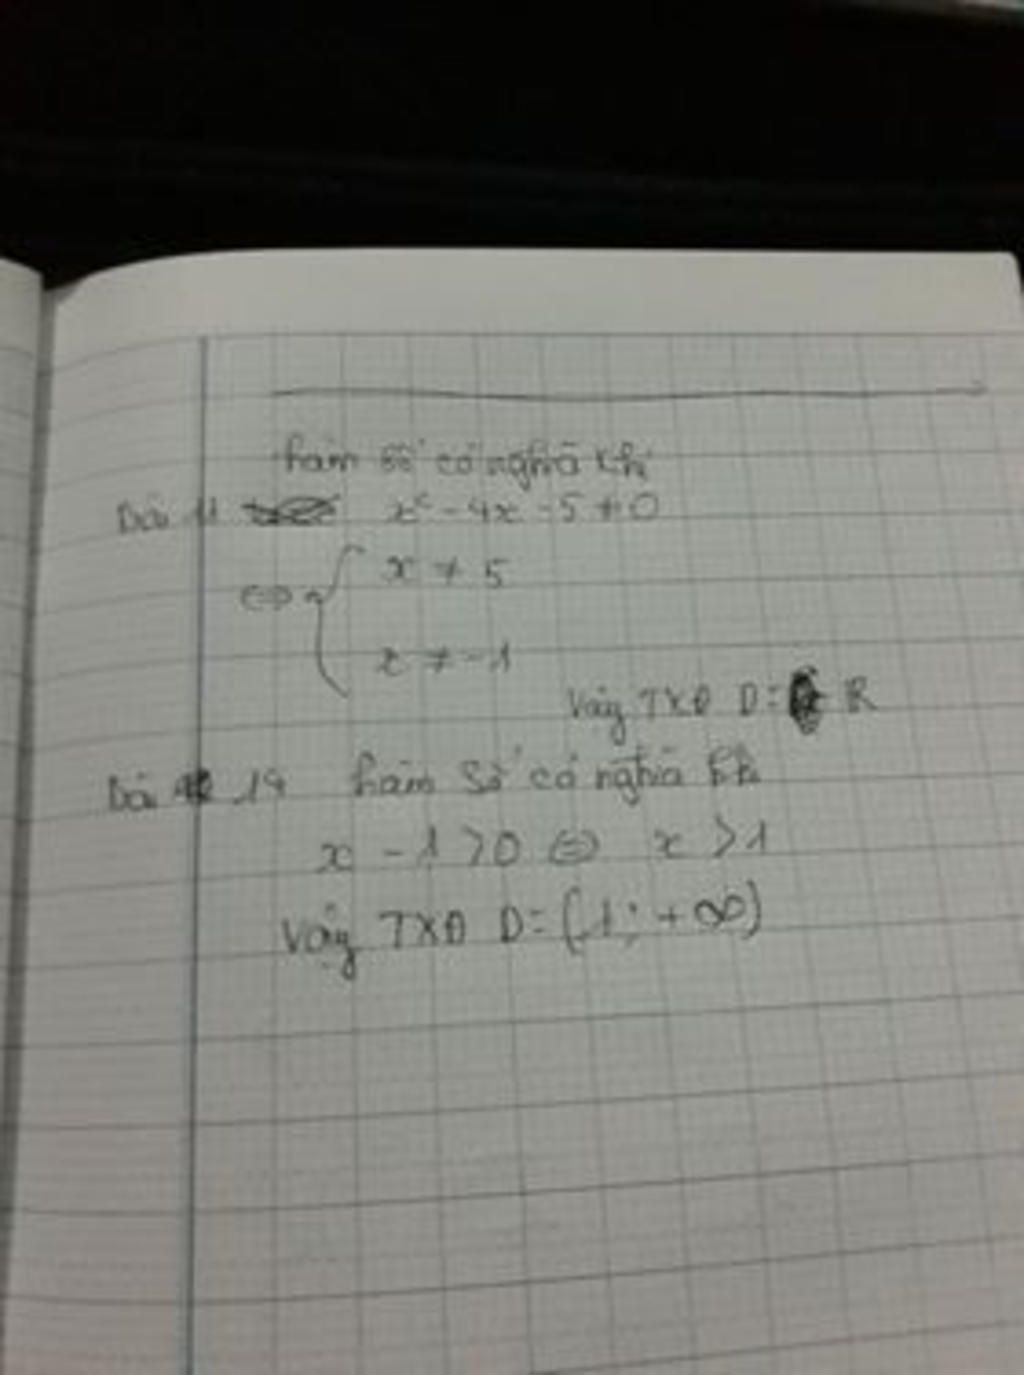 hàm số có nghĩa khi
Bài 11 x² - 4x - 5 ≠ 0
⇔ { x ≠ 5
x ≠ -1
Vậy TXĐ D = R
Bài 14 hàm số có nghĩa khi
x - 1 > 0 ⇔ x > 1
Vậy TXĐ D = (1; +∞)